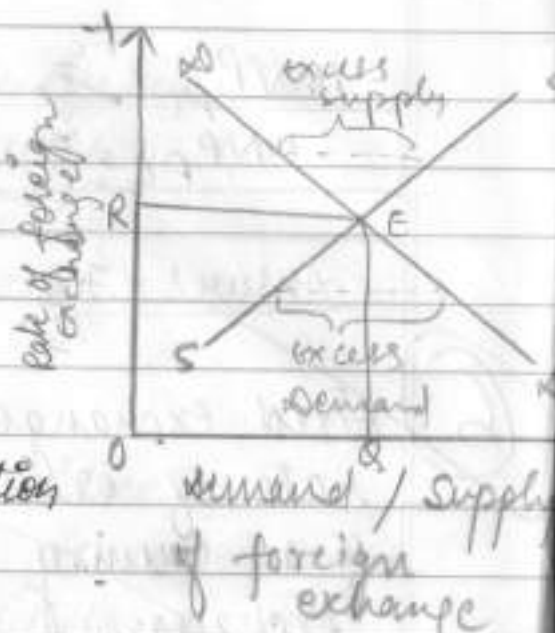 Y
D
excess
supply
S
Rate of foreign
exchange
R
E
S
excess
Demand
D
O
Q
tion
Demand / Supply
of foreign
exchange